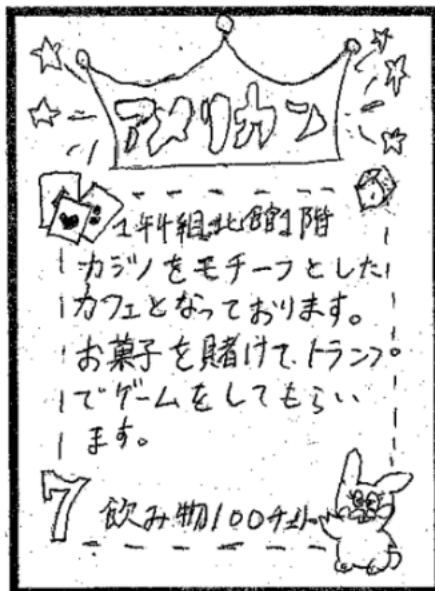 アメリカン
1年4組北館1階
カジノをモチーフとした
カフェとなっております。
お菓子を賭けて、トランプ
でゲームをしてもらい
ます。
7 飲み物100チェリー